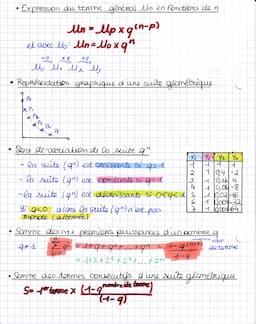 • Expression du terme général Un en fonctions de n
Un = Up × q^(n-p)
et avec U0 : Un = U0 × q^n
×q ×q ×q
U0 U1 U2 U3
• Représentation graphique d'une suite géométrique
• Sens de variation de la suite q^n
- la suite (q^n) est croissante si q>1
- la suite (q^n) est constante si q=1
- la suite (q^n) est décroissante si 0<q<1
si q<0, alors la suite (q^n) n'est pas
monotone (alternée)
• Somme des n+1 premières puissances d'un nombre q
q≠1
= 1+q+q²+...+q^n =
1-q
= 1+2+2²+2³+...+2^n
• Somme des termes consécutifs d'une suite géométrique
S = 1er terme × (1-q^nombre de termes)
(1-q)